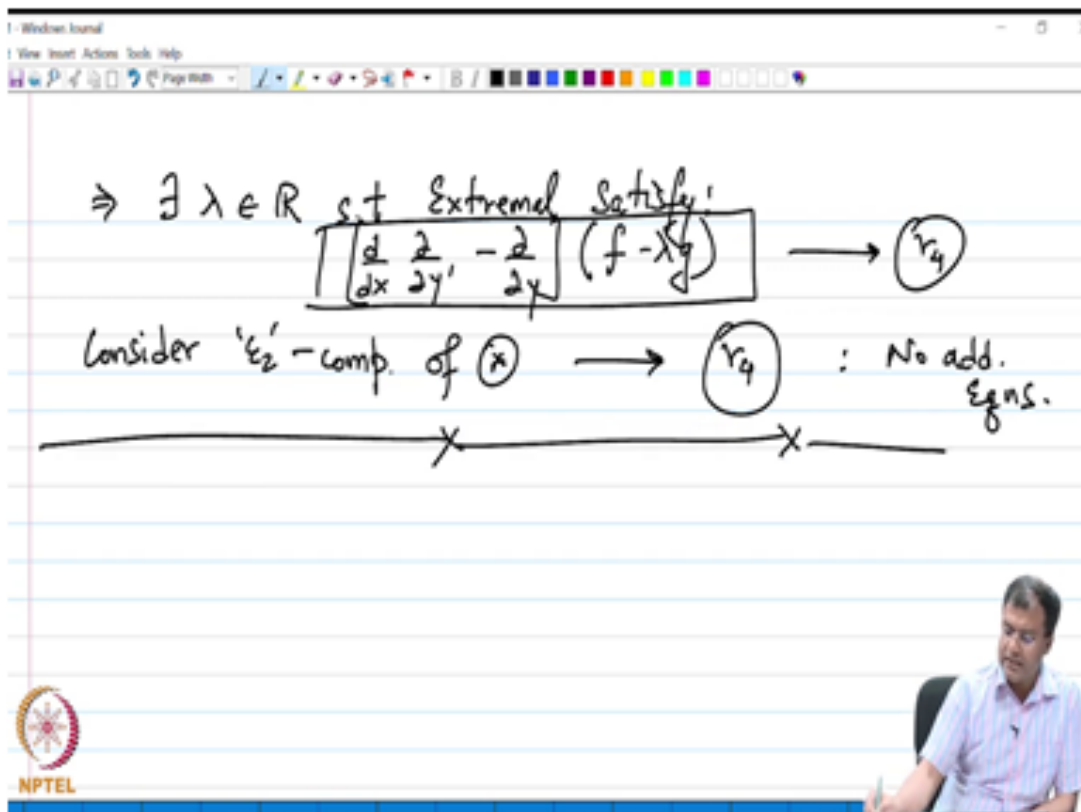 - Windows Journal
View Insert Actions Tools Help
Page Width
B I
⇒ ∃ λ ∈ ℝ s.t Extremal Satisfy:
[d/dx ∂/∂y' - ∂/∂y] (f - λg) → (r₄)
Consider 'ε₂' - comp. of ⊛ → (r₄) : No add.
Eqns.
NPTEL